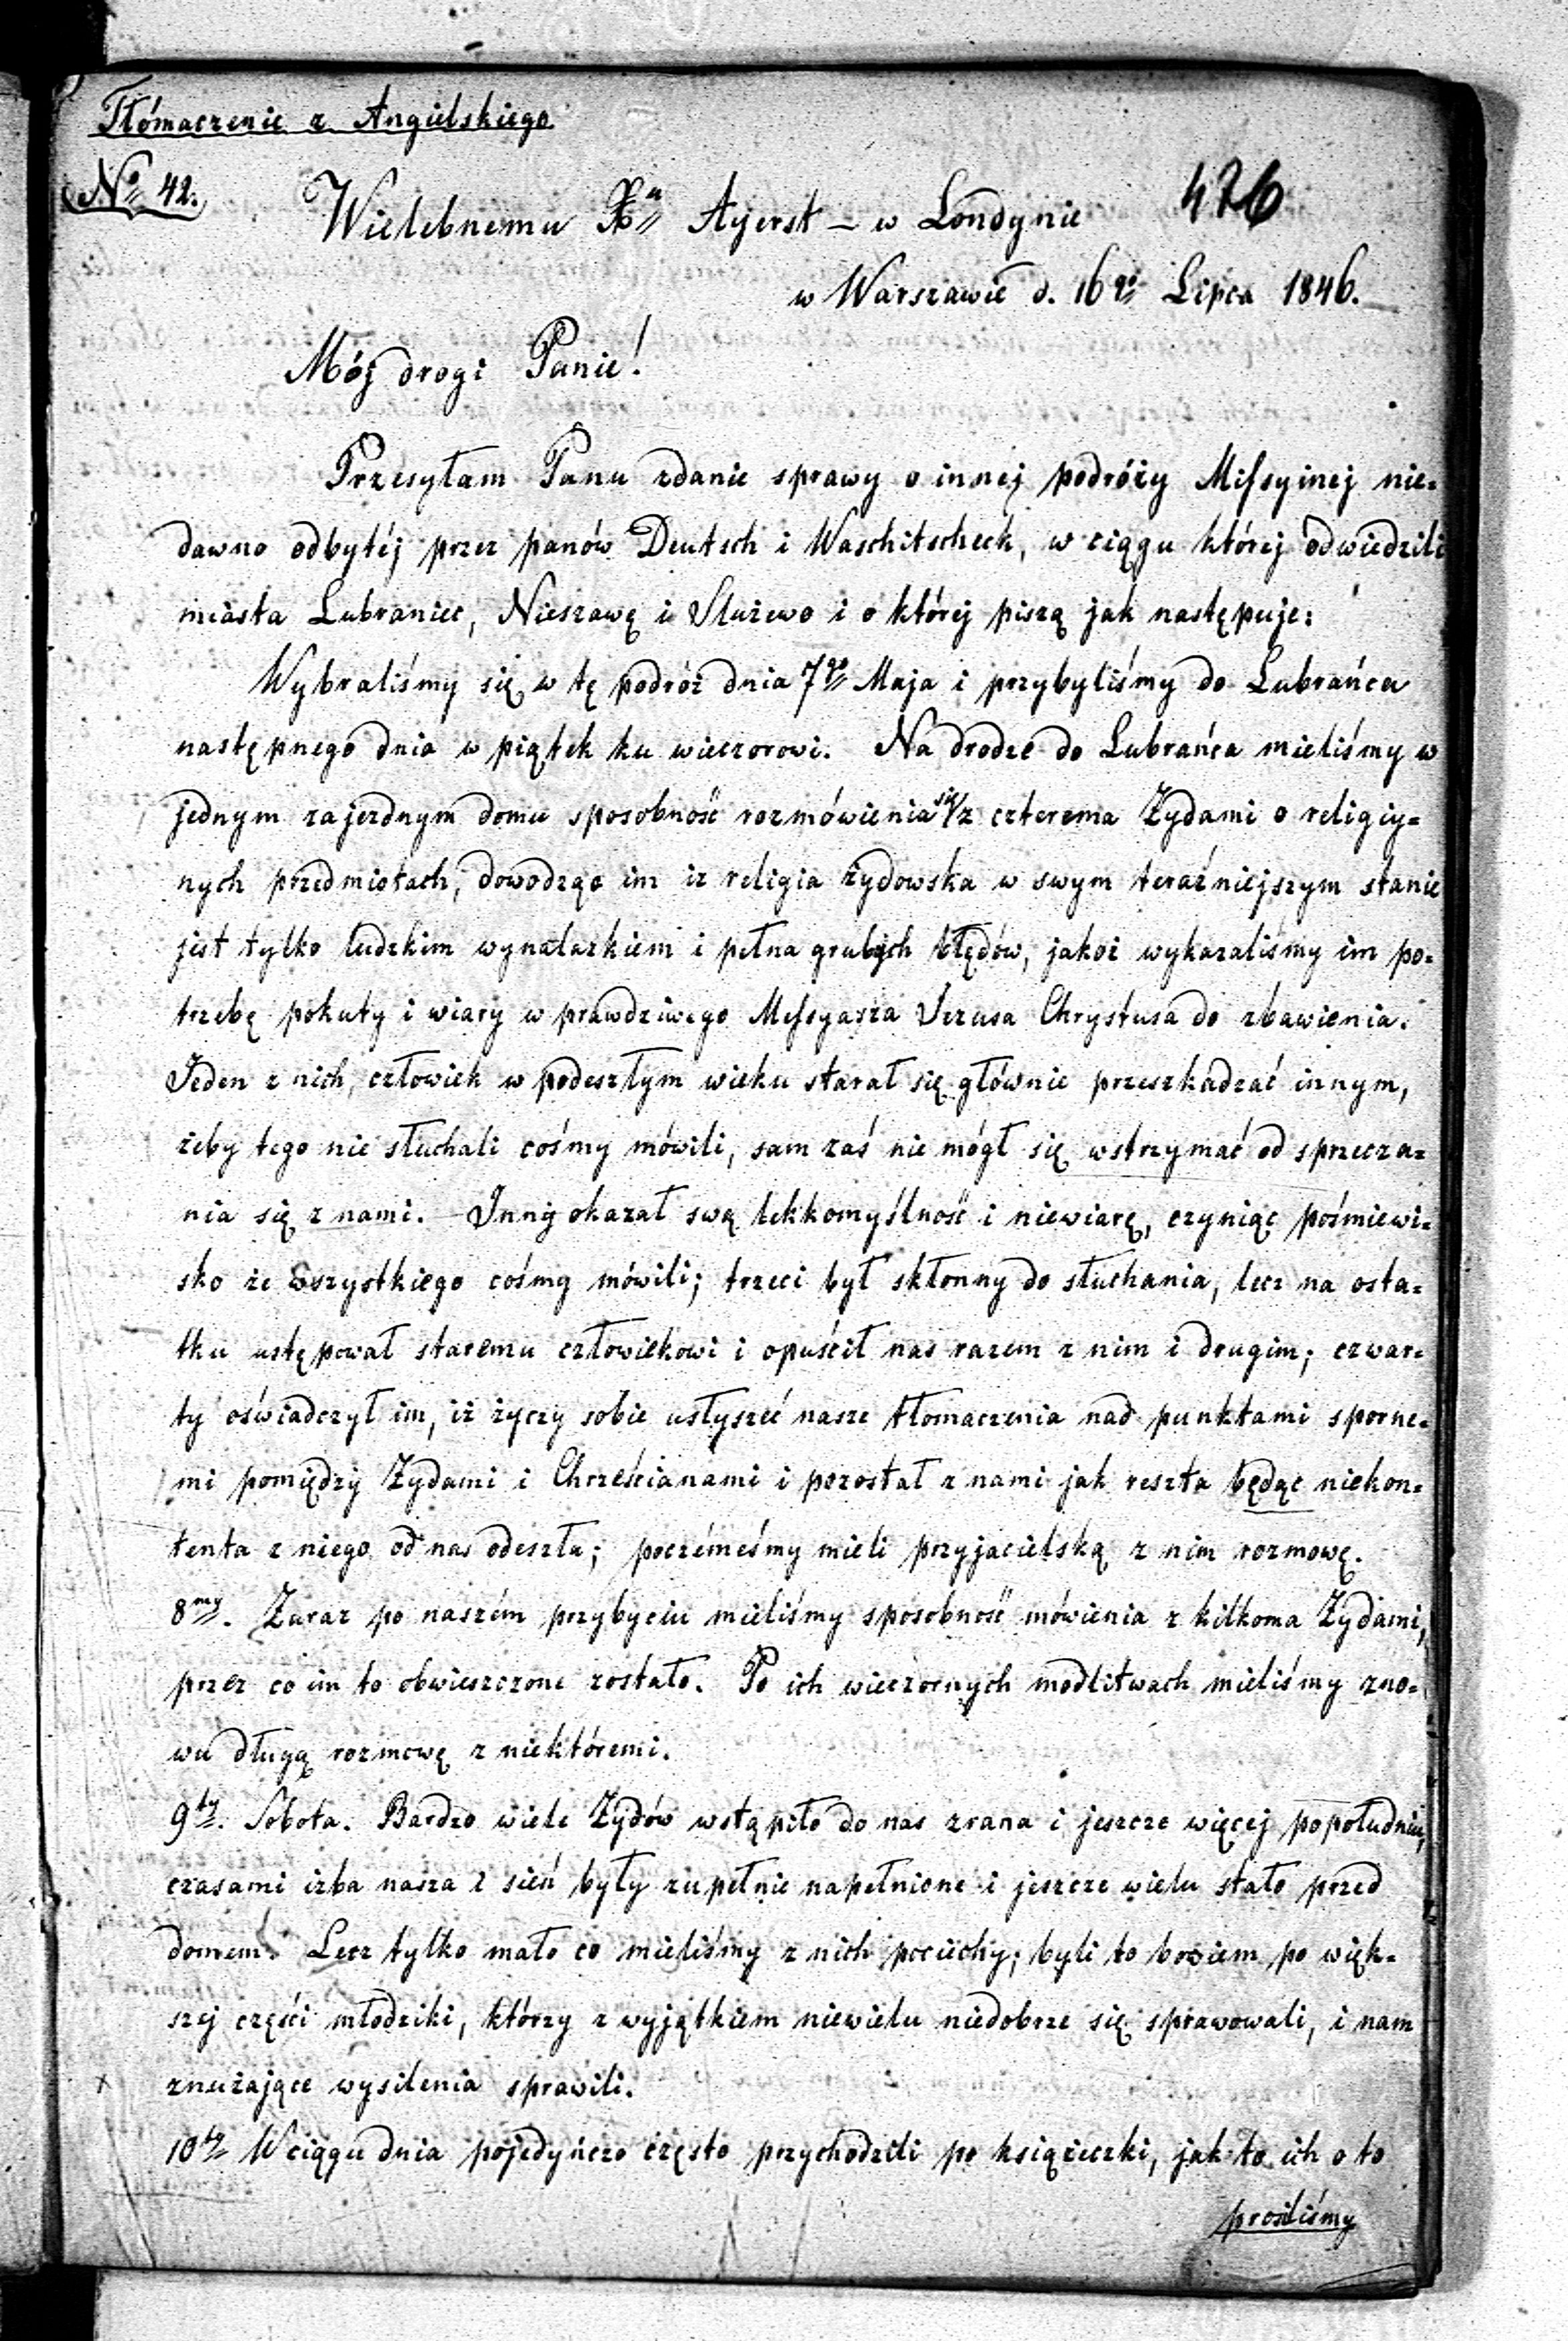 Tłómaczenie z Angielskiego
No 42.
476
Wielebnemu Xu Ayerst – w Londynie
w Warszawie d. 16go Lipca 1846.
Mój drogi Panie!
Przesyłam Panu zdanie sprawy o innej podróży Missyinej nie=
dawno odbytéj przez panów Deutsch i Waschitscheck, w ciągu której odwiedzili
miasta Lubraniec, Nieszawę i Służewo i o której piszą jak następuje:
Wybraliśmy się w tę podróż dnia 7go Maja i przybyliśmy do Lubrańca
następnego dnia w piątek ku wieczorowi. Na drodze do Lubrańca mieliśmy w
jednym zajezdnym domu sposobność rozmówienia się z czterema Żydami o religiy=
nych przedmiotach, dowodząc im iż religia żydowska w swym teraźniejszym stanie
jest tylko ludzkim wynalazkiem i pełna grubych błędów, jakoż wykazaliśmy im po=
trzebę pokuty i wiary w prawdziwego Messyasza Jezusa Chrystusa do zbawienia.
Jeden z nich, człowiek w podeszłym wieku starał się głównie przeszkadzać innym,
żeby tego nie słuchali cośmy mówili, sam zaś nie mógł się wstrzymać od sprzecza=
nia się z nami. – Inny okazał swą lekkomyślność i niewiarę, czyniąc pośmiewi=
sko ze wszystkiego cośmy mówili; trzeci był skłonny do słuchania, lecz na osta=
tku ustępował staremu człowiekowi i opuścił nas razem z nim i drugim; czwar=
ty oświadczył im, iż życzy sobie usłyszeć nasze tłomaczenia nad punktami sporne=
mi pomiędzy Żydami i Chrześcianami i pozostał z nami jak reszta będąc niekon=
tenta z niego od nas odeszła; poczémeśmy mieli przyjacielską z nim rozmowę.
8my. Zaraz po naszém przybyciu mieliśmy sposobność mówienia z kilkoma Żydami,
przez co im to obwieszczone zostało. Po ich wieczornych modlitwach mieliśmy zno=
wu długą rozmowę z niektóremi.
9ty. Sobota. Bardzo wiele Żydów wstąpiło do nas zrana i jeszcze więcej popołudniu,
czasami izba nasza i sień były zupełnie napełnione i jeszcze wielu stało przed
domem. Lecz tylko mało co mieliśmy z nich pociechy; byli to bowiem po więk=
szej części młodziki, którzy z wyjątkiem niewielu niedobrze się sprawowali, i nam
znużające wysilenia sprawili.
10ty W ciągu dnia pojedyńczo często przychodzili po książeczki, jak to ich o to
prosiliśmy